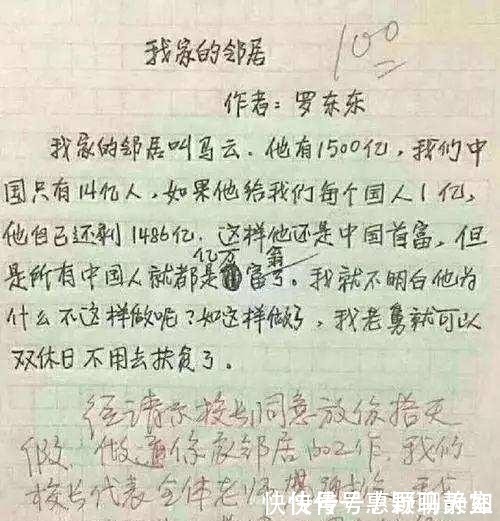 我家的邻居
100
作者：罗东东
我家的邻居叫马云．他有1500亿，我们中
国只有14亿人，如果他给我们每个国人1亿，
他自己还剩1486亿．这样他还是中国首富，但
亿万 翁
是所有中国人就都是富了。我就不明白他为
什么不这样做呢？如这样做了，我老舅就可以
双休日不用去扶贫了。
经请示校长同意放你搭天
假，做通你家邻居的工作．我们
校长代表全体老师
快传号